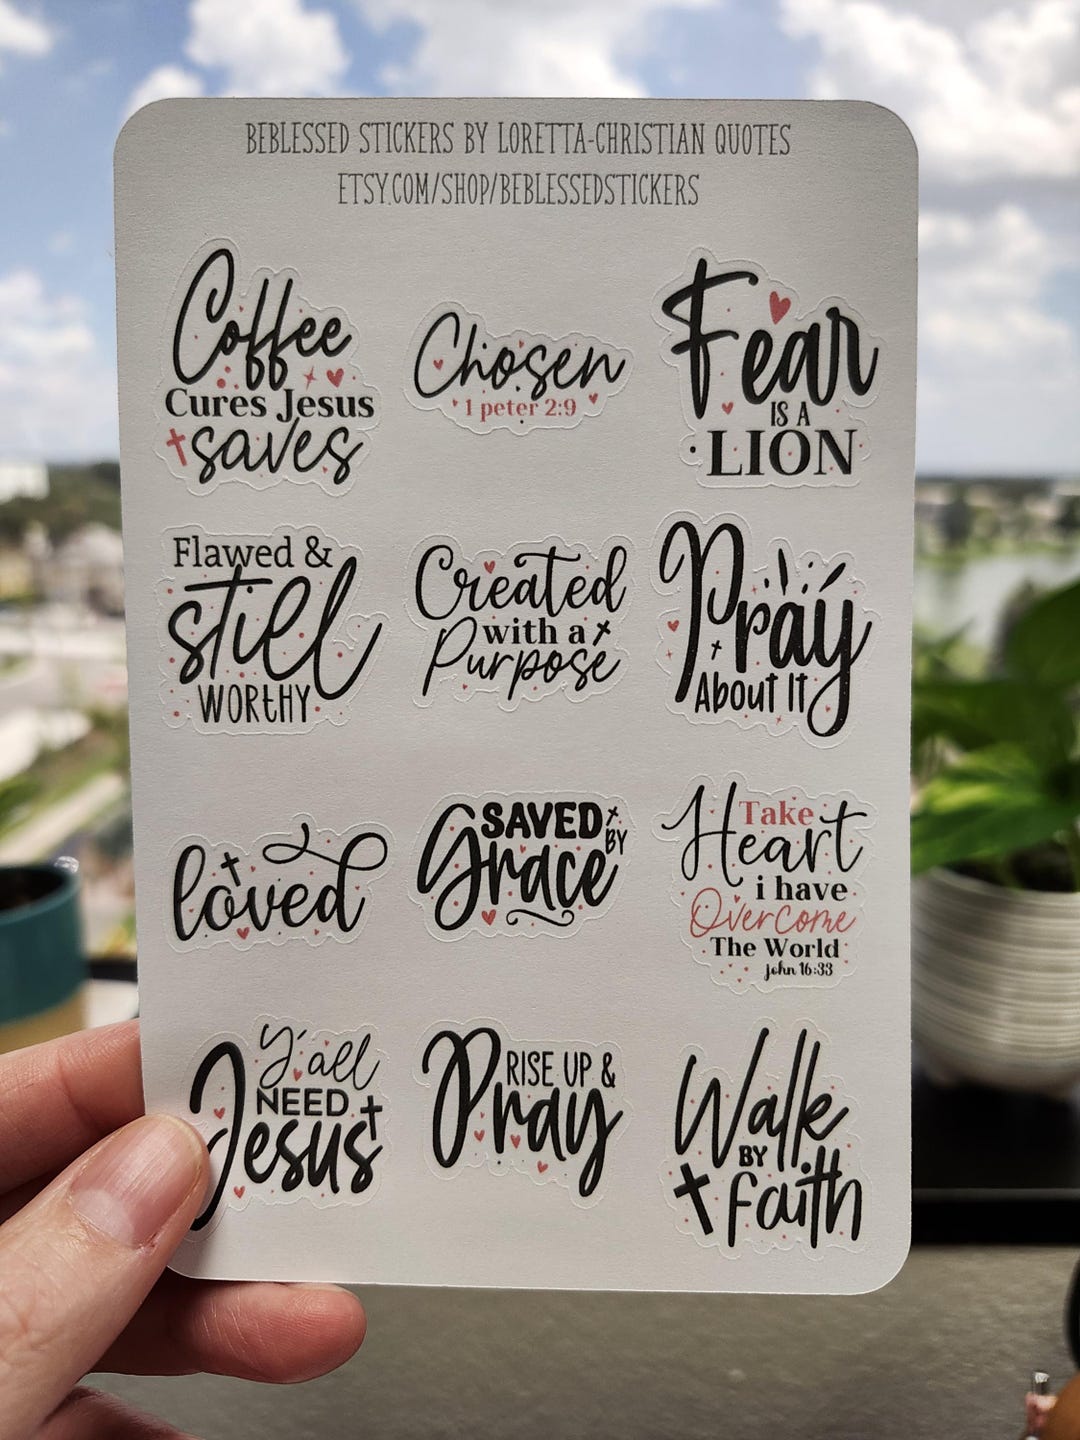 BEBLESSED STICKERS BY LORETTA-CHRISTIAN QUOTES
ETSY.COM/SHOP/BEBLESSEDSTICKERS
Coffee
Cures Jesus
saves
Chosen
1 peter 2:9
Fear
IS A
LION
Flawed &
still
WORtHY
Created
with a
Purpose
Pray
About It
loved
SAVED
BY
Grace
Take
Heart
i have
Overcome
The World
john 16:33
Y'all
NEED
Jesus
RISE UP &
Pray
Walk
BY
faith